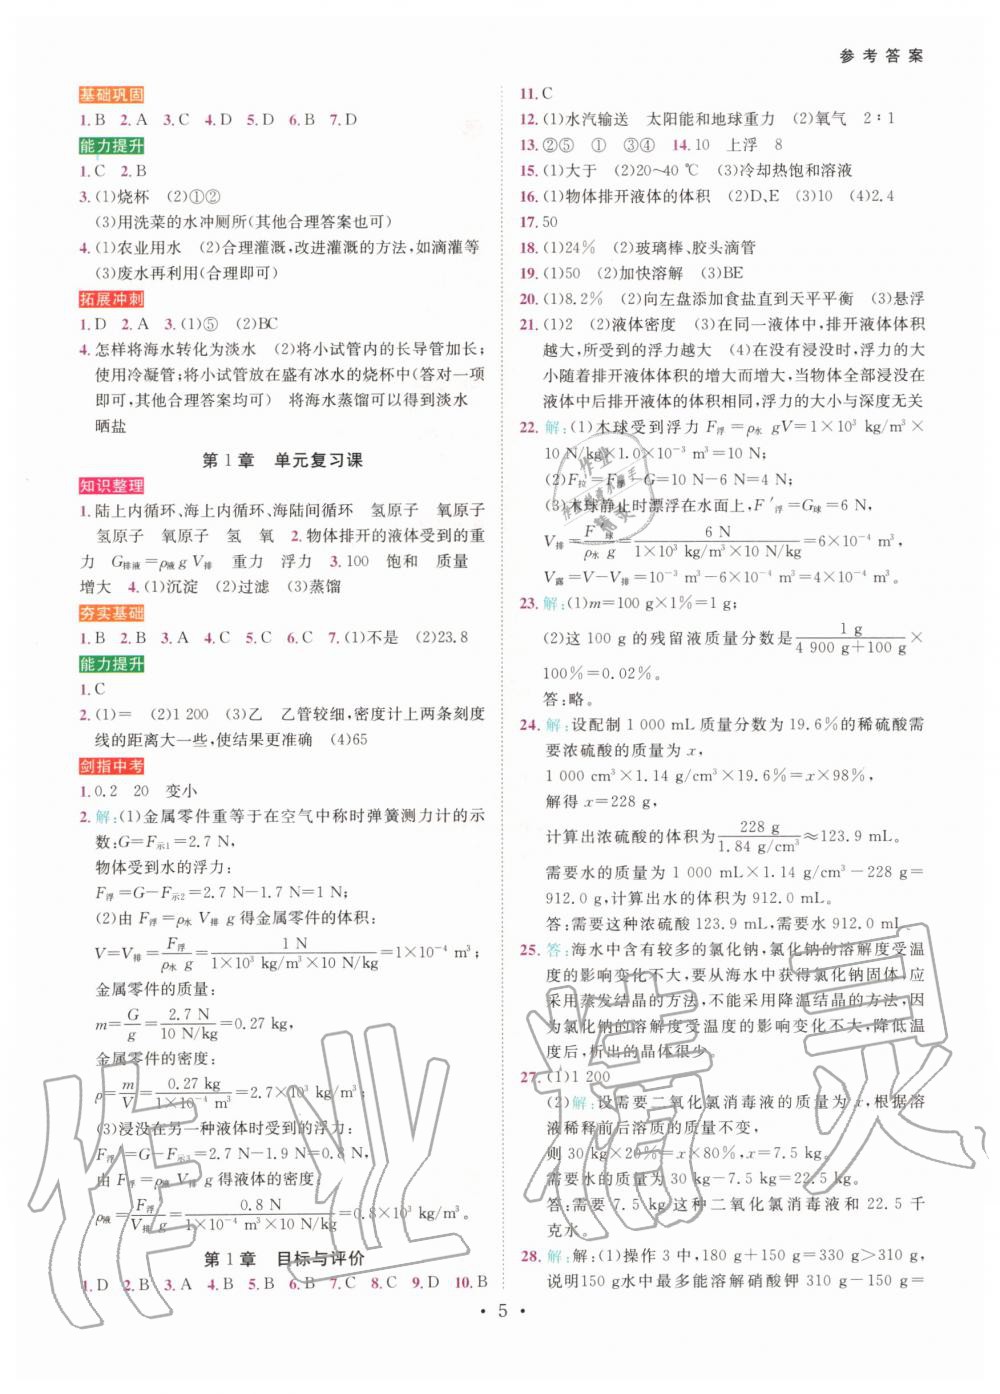 参考答案
基础巩固
1. B 2. A 3. C 4. D 5. D 6. B 7. D
能力提升
1. C 2. B
3. (1)烧杯 (2)①②
(3)用洗菜的水冲厕所(其他合理答案也可)
4. (1)农业用水 (2)合理灌溉,改进灌溉的方法,如滴灌等
(3)废水再利用(合理即可)
拓展冲刺
1. D 2. A 3. (1)⑤ (2)BC
4. 怎样将海水转化为淡水 (2)将小试管内的长导管加长;
使用冷凝管;将小试管放在盛有冰水的烧杯中(答对一项
即可,其他合理答案均可) 将海水蒸馏可以得到淡水
晒盐
第1章 单元复习课
知识整理
1. 陆上内循环、海上内循环、海陆间循环 氢原子 氧原子
氢原子 氧原子 氢 氧 2. 物体排开的液体受到的重
力 G排液=ρ液 g V排 重力 浮力 3. 100 饱和 质量
增大 4. (1)沉淀 (2)过滤 (3)蒸馏
夯实基础
1. B 2. B 3. A 4. C 5. C 6. C 7. (1)不是 (2)23.8
能力提升
1. C
2. (1)= (2)1 200 (3)乙 乙管较细,密度计上两条刻度
线的距离大一些,使结果更准确 (4)65
剑指中考
1. 0.2 20 变小
2. 解:(1)金属零件重等于在空气中称时弹簧测力计的示
数:G=F示1=2.7 N,
物体受到水的浮力:
F浮=G-F示2=2.7 N-1.7 N=1 N;
(2)由 F浮=ρ水 V排 g得金属零件的体积:
V=V排=F浮/ρ水 g=1 N/1×10³ kg/m³×10 N/kg=1×10⁻⁴ m³;
金属零件的质量:
m=G/g=2.7 N/10 N/kg=0.27 kg,
金属零件的密度:
ρ=m/V=0.27 kg/1×10⁻⁴ m³=2.7×10³ kg/m³;
(3)浸没在另一种液体时受到的浮力:
F浮=G-F示3=2.7 N-1.9 N=0.8 N,
由 F浮=ρ液 V排 g得液体的密度:
ρ液=F浮/V排 g=0.8 N/1×10⁻⁴ m³×10 N/kg=0.8×10³ kg/m³。
第1章 目标与评价
1. D 2. B 3. A 4. B 5. B 6. B 7. C 8. C 9. D 10. B
11. C
12. (1)水汽输送 太阳能和地球重力 (2)氧气 2∶1
13. ②⑤ ① ③④ 14. 10 上浮 8
15. (1)大于 (2)20~40 ℃ (3)冷却热饱和溶液
16. (1)物体排开液体的体积 (2)D、E (3)10 (4)2.4
17. 50
18. (1)24% (2)玻璃棒、胶头滴管
19. (1)50 (2)加快溶解 (3)BE
20. (1)8.2% (2)向左盘添加食盐直到天平平衡 (3)悬浮
21. (1)2 (2)液体密度 (3)在同一液体中,排开液体体积
越大,所受到的浮力越大 (4)在没有浸没时,浮力的大
小随着排开液体体积的增大而增大,当物体全部浸没在
液体中后排开液体的体积相同,浮力的大小与深度无关
22. 解:(1)木球受到浮力 F浮=ρ水 gV=1×10³ kg/m³×
10 N/kg×1.0×10⁻³ m³=10 N;
(2)F拉=F浮-G=10 N-6 N=4 N;
(3)木球静止时漂浮在水面上,F′浮=G球=6 N,
V排=F′球/ρ水 g=6 N/1×10³ kg/m³×10 N/kg=6×10⁻⁴ m³,
V露=V-V排=10⁻³ m³-6×10⁻⁴ m³=4×10⁻⁴ m³。
23. 解:(1)m=100 g×1%=1 g;
(2)这 100 g 的残留液质量分数是1 g/4 900 g+100 g×
100%=0.02%。
答:略。
24. 解:设配制 1 000 mL 质量分数为 19.6%的稀硫酸需
要浓硫酸的质量为 x,
1 000 cm³×1.14 g/cm³×19.6%=x×98%,
解得 x=228 g,
计算出浓硫酸的体积为228 g/1.84 g/cm³≈123.9 mL,
需要水的质量为 1 000 mL×1.14 g/cm³-228 g=
912.0 g,计算出水的体积为 912.0 mL。
答:需要这种浓硫酸 123.9 mL,需要水 912.0 mL
25. 答:海水中含有较多的氯化钠,氯化钠的溶解度受温
度的影响变化不大,要从海水中获得氯化钠固体,应
采用蒸发结晶的方法,不能采用降温结晶的方法,因
为氯化钠的溶解度受温度的影响变化不大,降低温
度后,析出的晶体很少。
27. (1)1 200
(2)解:设需要二氧化氯消毒液的质量为 x,根据溶
液稀释前后溶质的质量不变,
则 30 kg×20%=x×80%,x=7.5 kg,
需要水的质量为 30 kg-7.5 kg=22.5 kg。
答:需要 7.5 kg 这种二氧化氯消毒液和 22.5 千
克水。
28. 解:解:(1)操作 3 中,180 g+150 g=330 g>310 g,
说明150 g水中最多能溶解硝酸钾 310 g-150 g=
· 5 ·
作业精灵